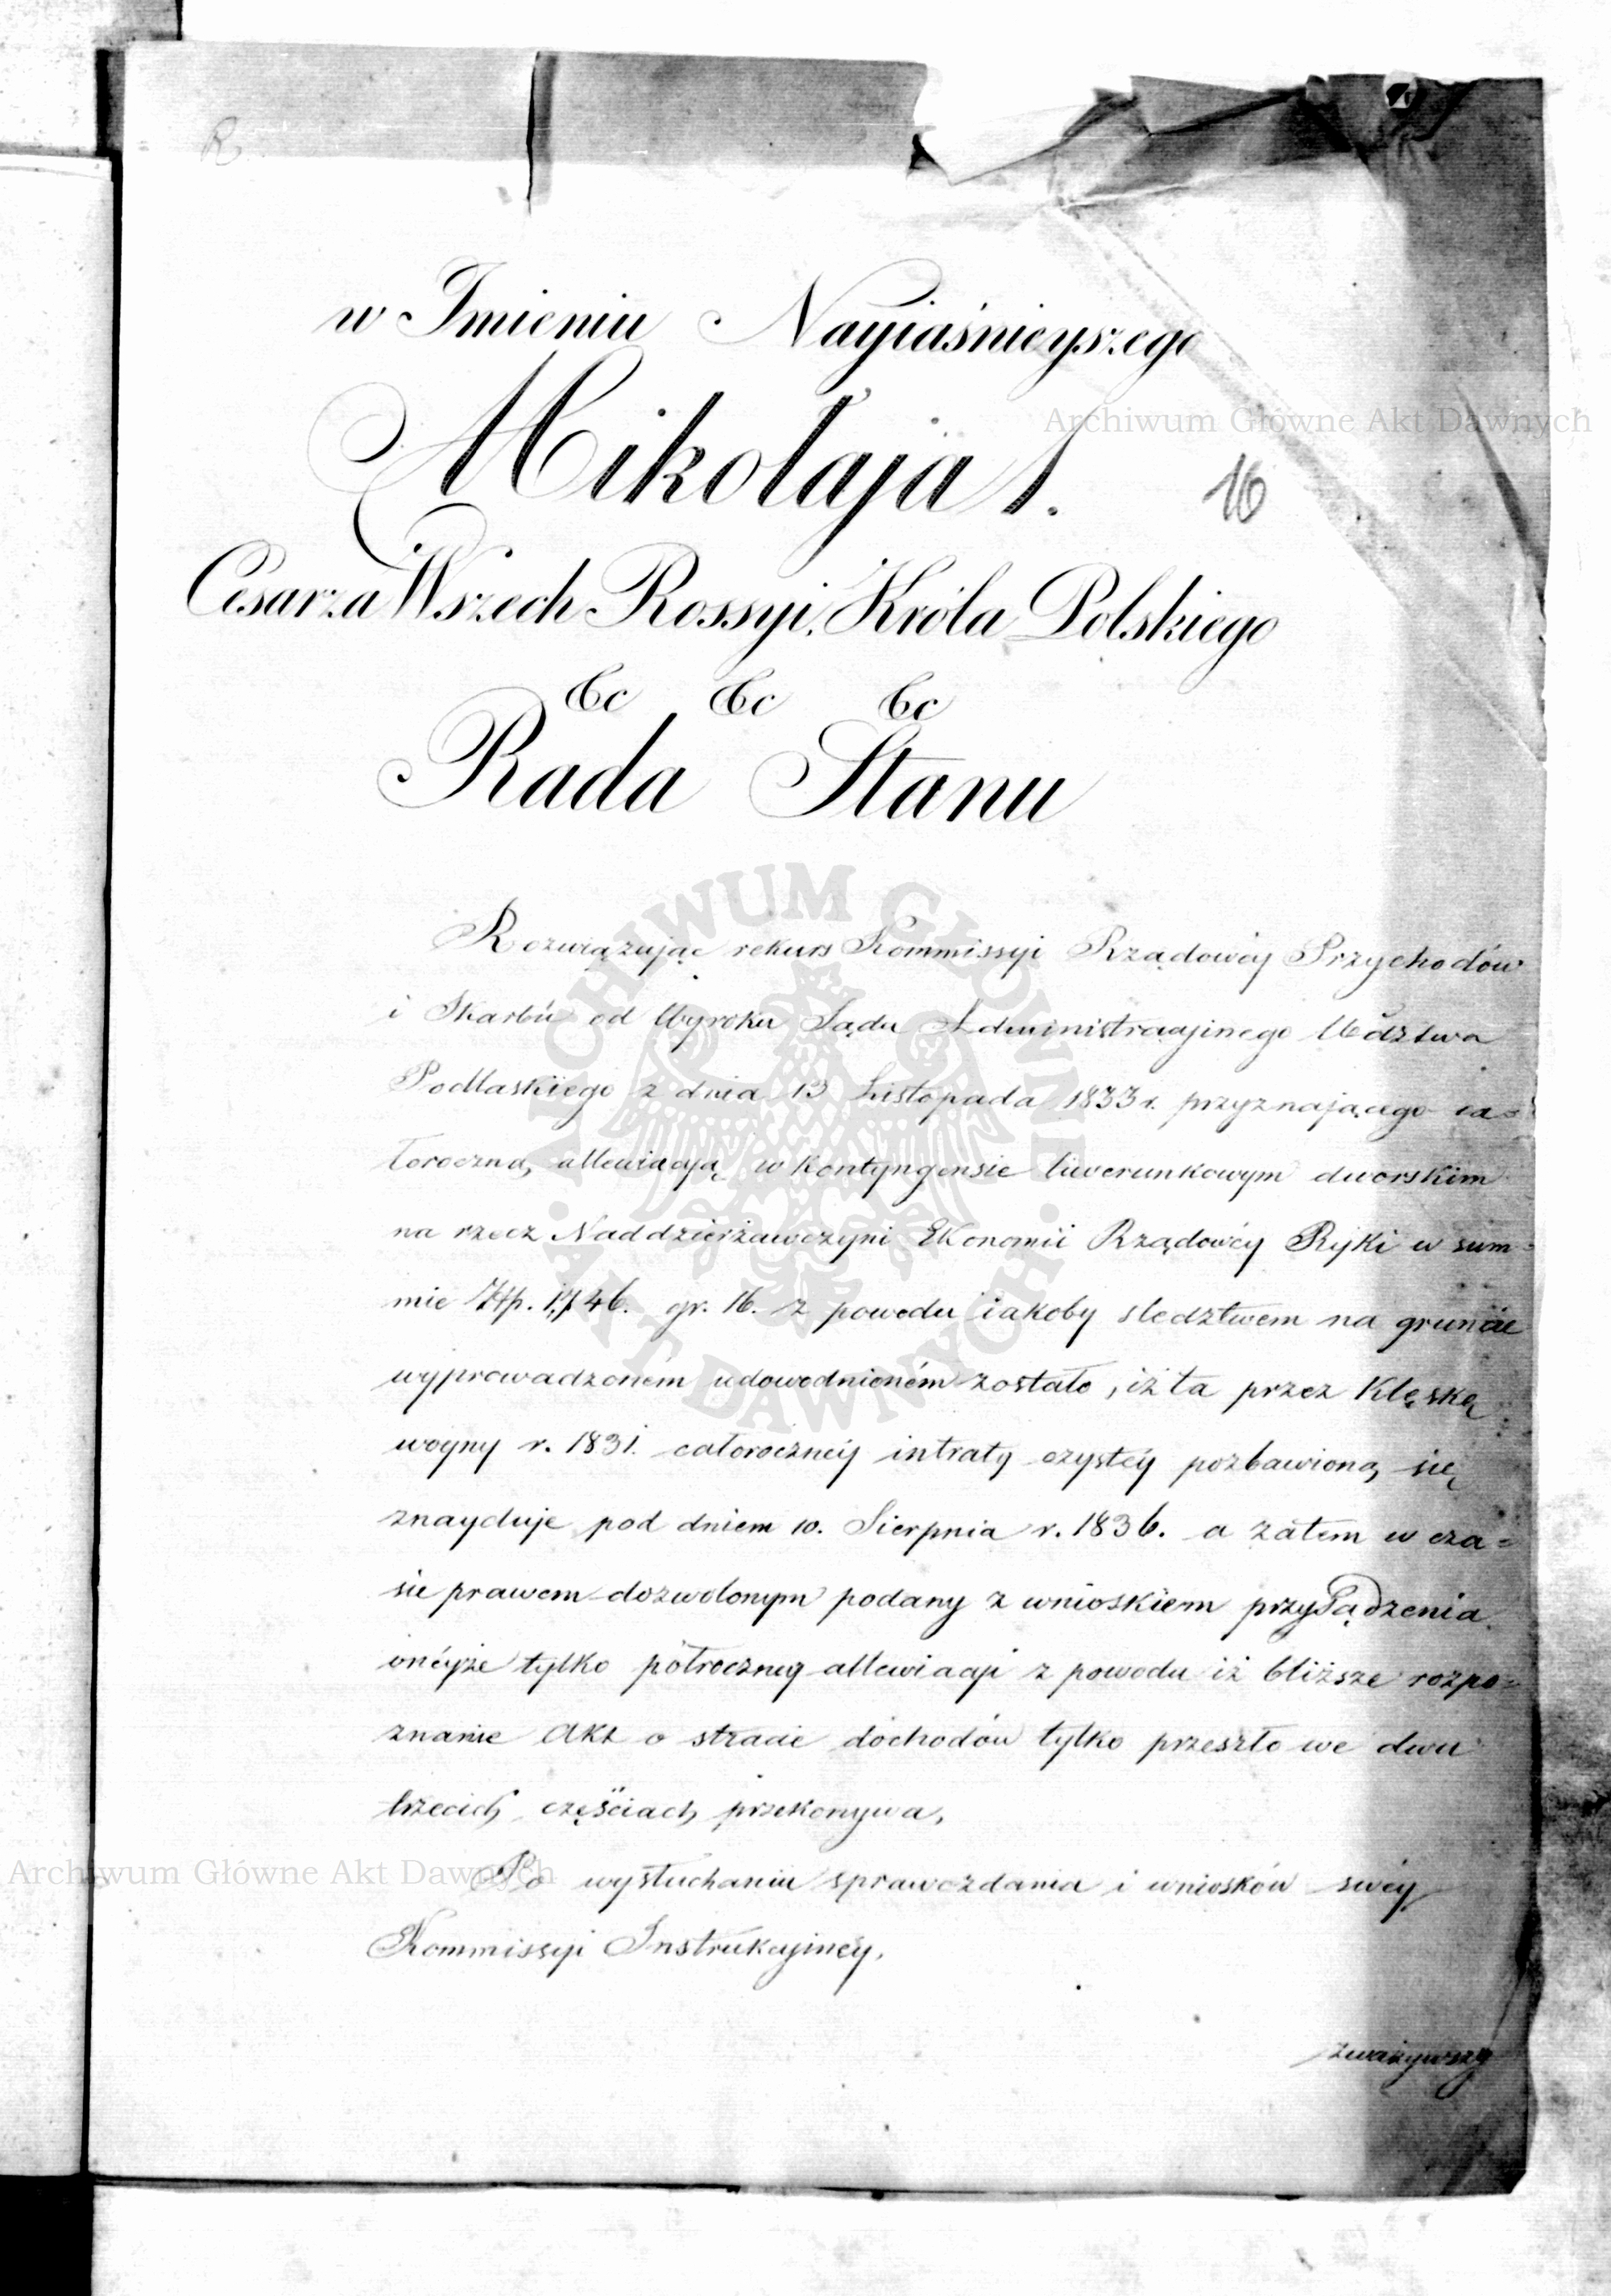 R
w Imieniu Nayiaśnieyszego
Mikołaja I.
16
Cesarza Wszech Rossyi, Króla Polskiego
&c &c &c
Rada Stanu
Rozwiązując rekurs Kommissyi Rządowéy Przychodów
i Skarbu od Wyroku Sądu Administracyjnego Wództwa
Podlaskiego z dnia 13 Listopada 1833 r. przyznającego ca=
łoroczną allewiacyą w kontyngensie liwerunkowym dworskim
na rzecz Naddzierżawczyni Ekonomii Rządowéy Ryki w sum=
mie Złp. 1,746. gr. 16. z powodu iakoby sledztwem na gruncie
wyprowadzoném udowodnioném zostało, iż ta przez klęskę
woyny r. 1831. całorocznéy intraty czystéy pozbawioną się
znayduje pod dniem 10. Sierpnia r. 1836. a zatem w cza=
sie prawem dozwolonym podany z wnioskiem przysądzenia
onéyże tylko półroczney allewiacyi z powodu iż bliższe rozpo=
znanie Akt o stracie dochodów tylko przeszło we dwu
trzecich częściach przekonywa,
Po wysłuchaniu sprawozdania i wniosków swéy
Kommissyi Instrukcyjnéy,
zważywszy
Archiwum Główne Akt Dawnych
Archiwum Główne Akt Dawnych
ARCHIWUM GŁÓWNE AKT DAWNYCH